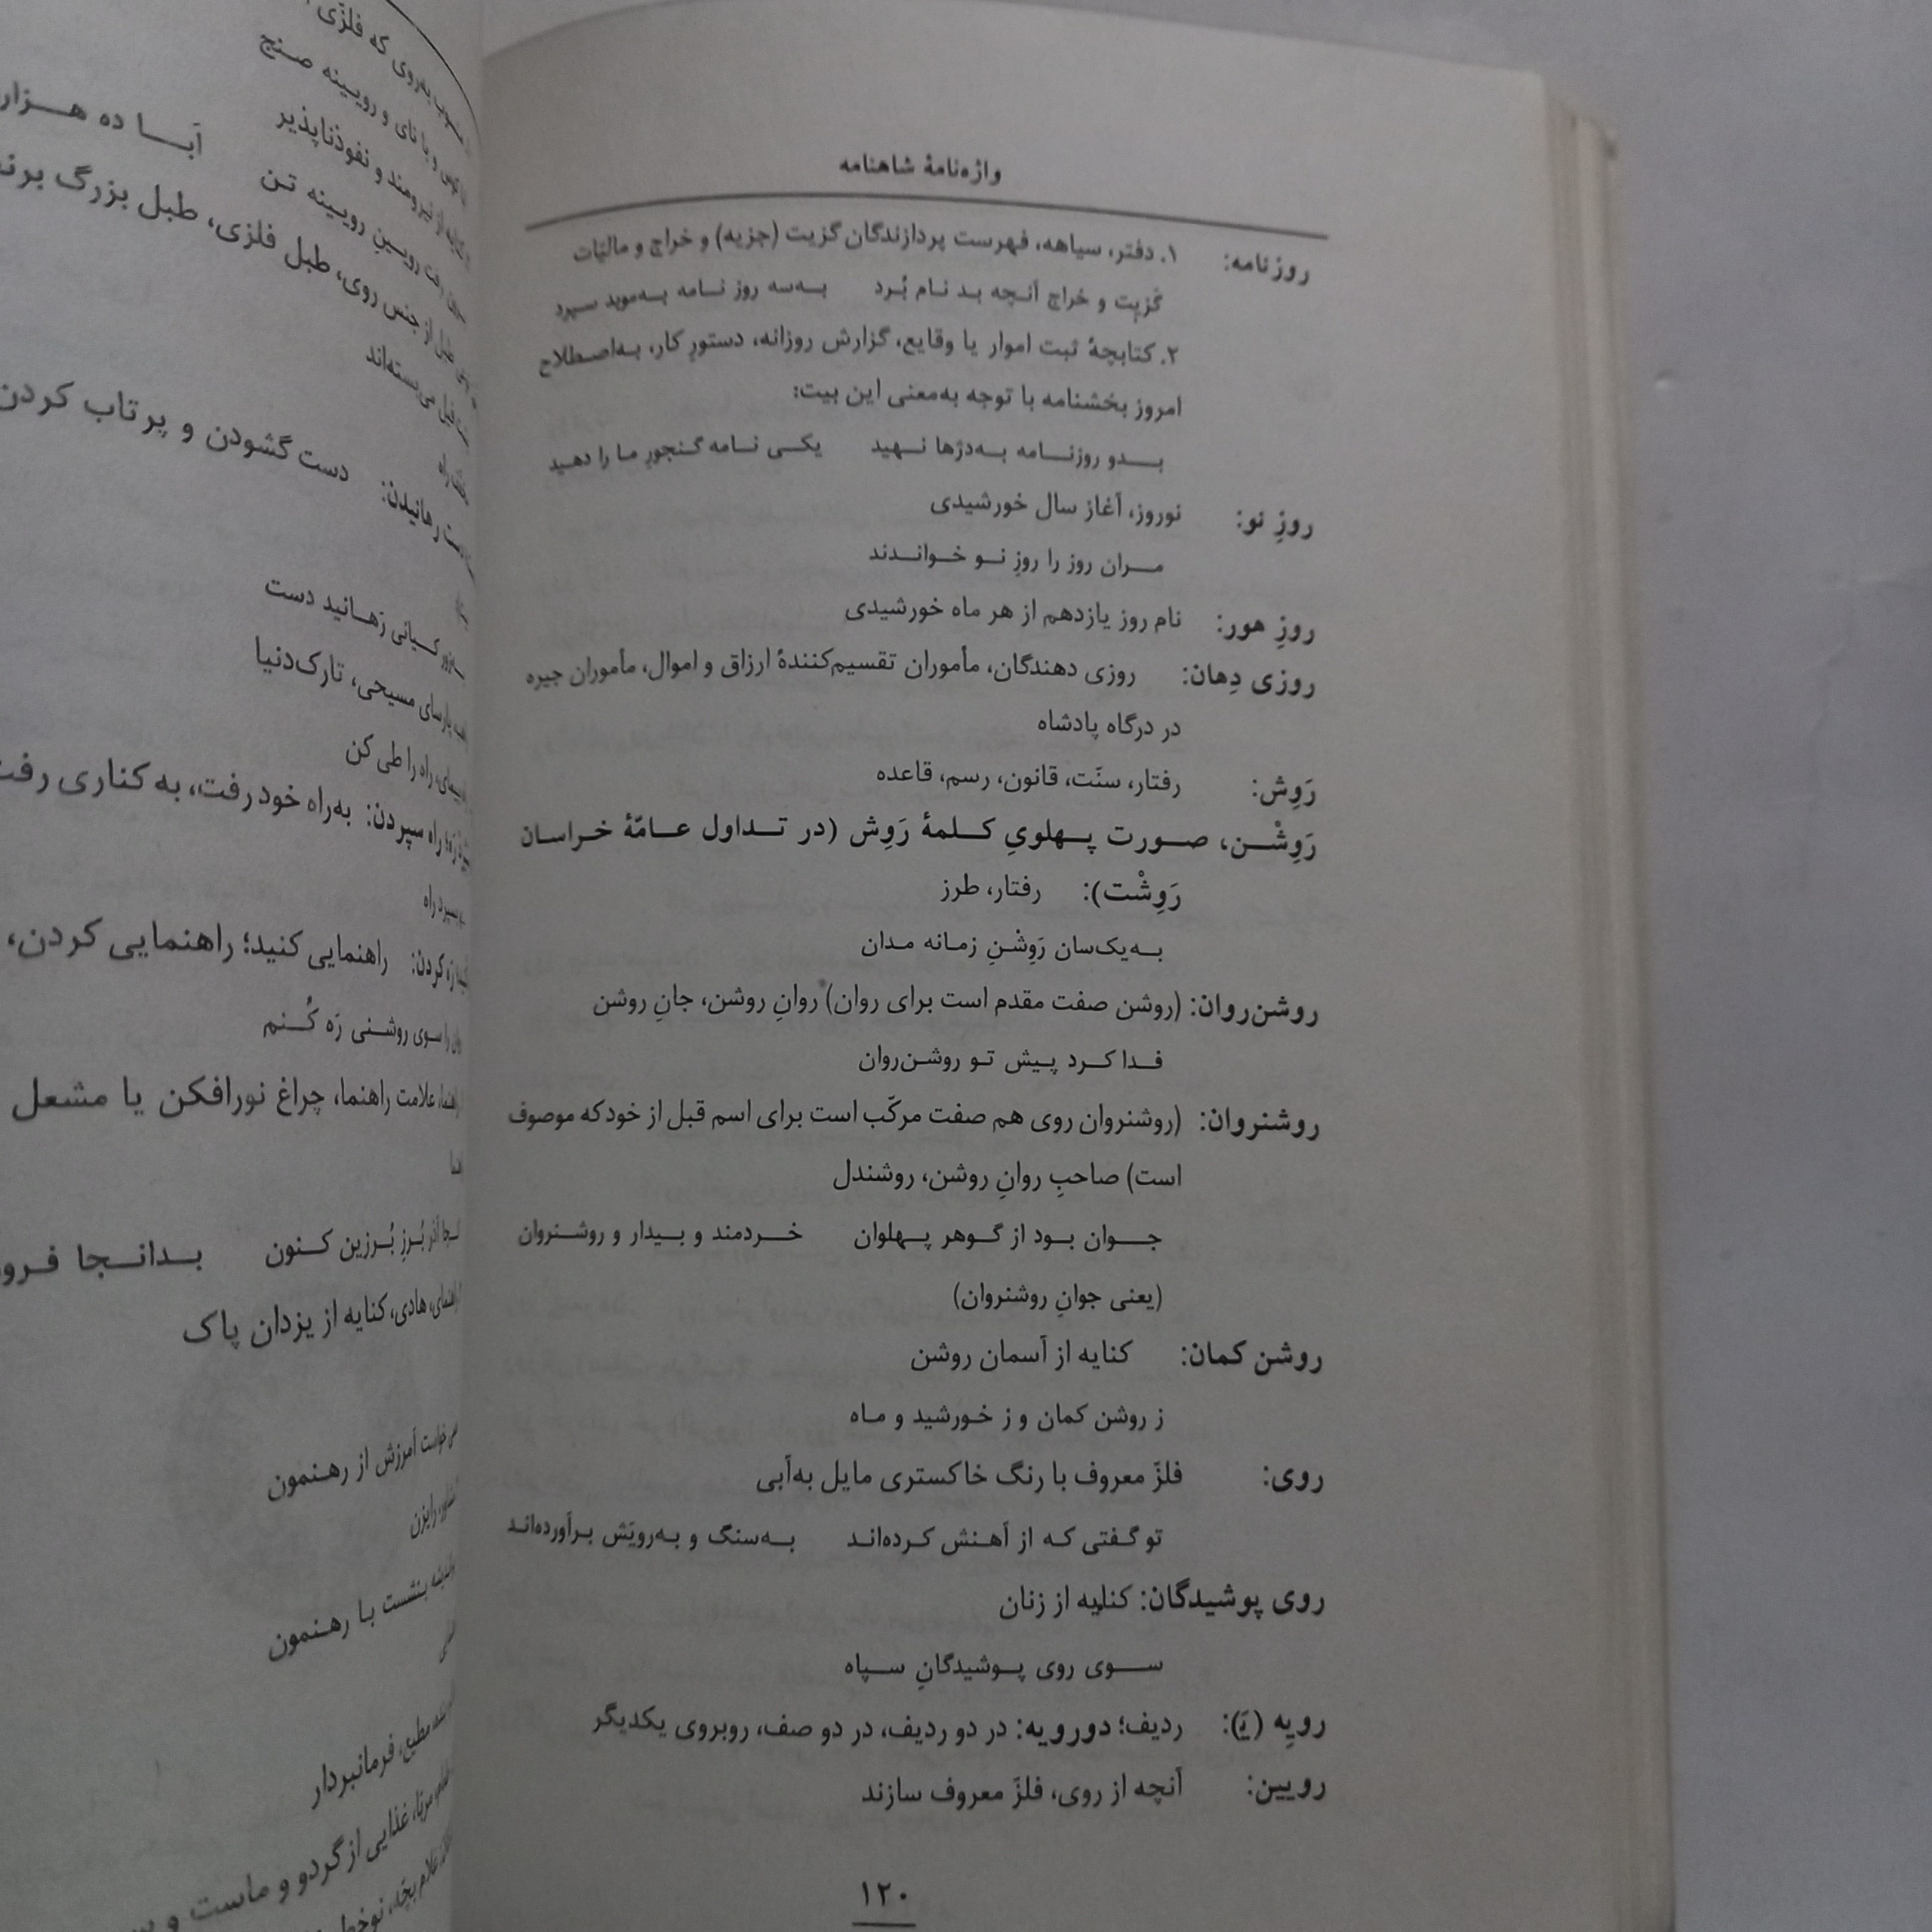 واژه‌نامهٔ شاهنامه
روزنامه: ۱. دفتر، سیاهه، فهرست پردازندگان گزیت (جزیه) و خراج و مالیات
گزیت و خراج آنچه بد نام بُرد به‌سه روز نامه به‌موبد سپرد
۲. کتابچهٔ ثبت اموار یا وقایع، گزارش روزانه، دستورِ کار، به‌اصطلاح
امروز بخشنامه با توجه به‌معنی این بیت:
بدو روزنامه به‌دژها نهید یکی نامه گنجورِ ما را دهید
روزِ نو: نوروز، آغاز سال خورشیدی
مران روز را روزِ نو خواندند
روزِ هور: نام روز یازدهم از هر ماه خورشیدی
روزی دِهان: روزی دهندگان، مأموران تقسیم‌کنندهٔ ارزاق و اموال، مأموران جیره
در درگاه پادشاه
رَوِش: رفتار، سنّت، قانون، رسم، قاعده
رَوِشْن، صورت پهلویِ کلمهٔ رَوِش (در تداول عامّهٔ خراسان
رَوِشْت): رفتار، طرز
به‌یک‌سان رَوِشْنِ زمانه مدان
روشن‌روان: (روشن صفت مقدم است برای روان) روانِ روشن، جانِ روشن
فدا کرد پیش تو روشن‌روان
روشنروان: (روشنروان روی هم صفت مرکّب است برای اسم قبل از خود که موصوف
است) صاحبِ روانِ روشن، روشندل
جوان بود از گوهر پهلوان خردمند و بیدار و روشنروان
(یعنی جوانِ روشنروان)
روشن کمان: کنایه از آسمان روشن
ز روشن کمان و ز خورشید و ماه
روی: فلزّ معروف با رنگ خاکستری مایل به‌آبی
تو گفتی که از آهنش کرده‌اند به‌سنگ و به‌رویَش برآورده‌اند
روی پوشیدگان: کنایه از زنان
سوی روی پوشیدگانِ سپاه
رویِه (یَ): ردیف؛ دورویه: در دو ردیف، در دو صف، روبروی یکدیگر
رویین: آنچه از روی، فلزّ معروف سازند
۱۲۰
به‌روی که فلزّی
با نای و رویینه صنج
نیرومند و نفوذناپذیر
رویینِ رویینه تن اَبا ده هزار
از جنس روی، طبل فلزی، طبل بزرگ
می‌بسته‌اند
رهانیدن: دست گشودن و پرتاب کردن
کیانی رَهانید دست
پارسای مسیحی، تارک‌دنیا
راه را طی کن
راه سپردن: به‌راه خود رفت، به کناری
راه
کردن: راهنمایی کنید؛ راهنمایی کردن،
سوی روشنی رَه کُنم
علامت راهنما، چراغ نورافکن یا مشعل
بُرزِ بُرزین کنون بدانجا
هادی، کنایه از یزدان پاک
آمرزش از رهنمون
رایزن
بنشست با رهنمون
مطیع، فرمانبردار
غذایی از گردو و ماست و